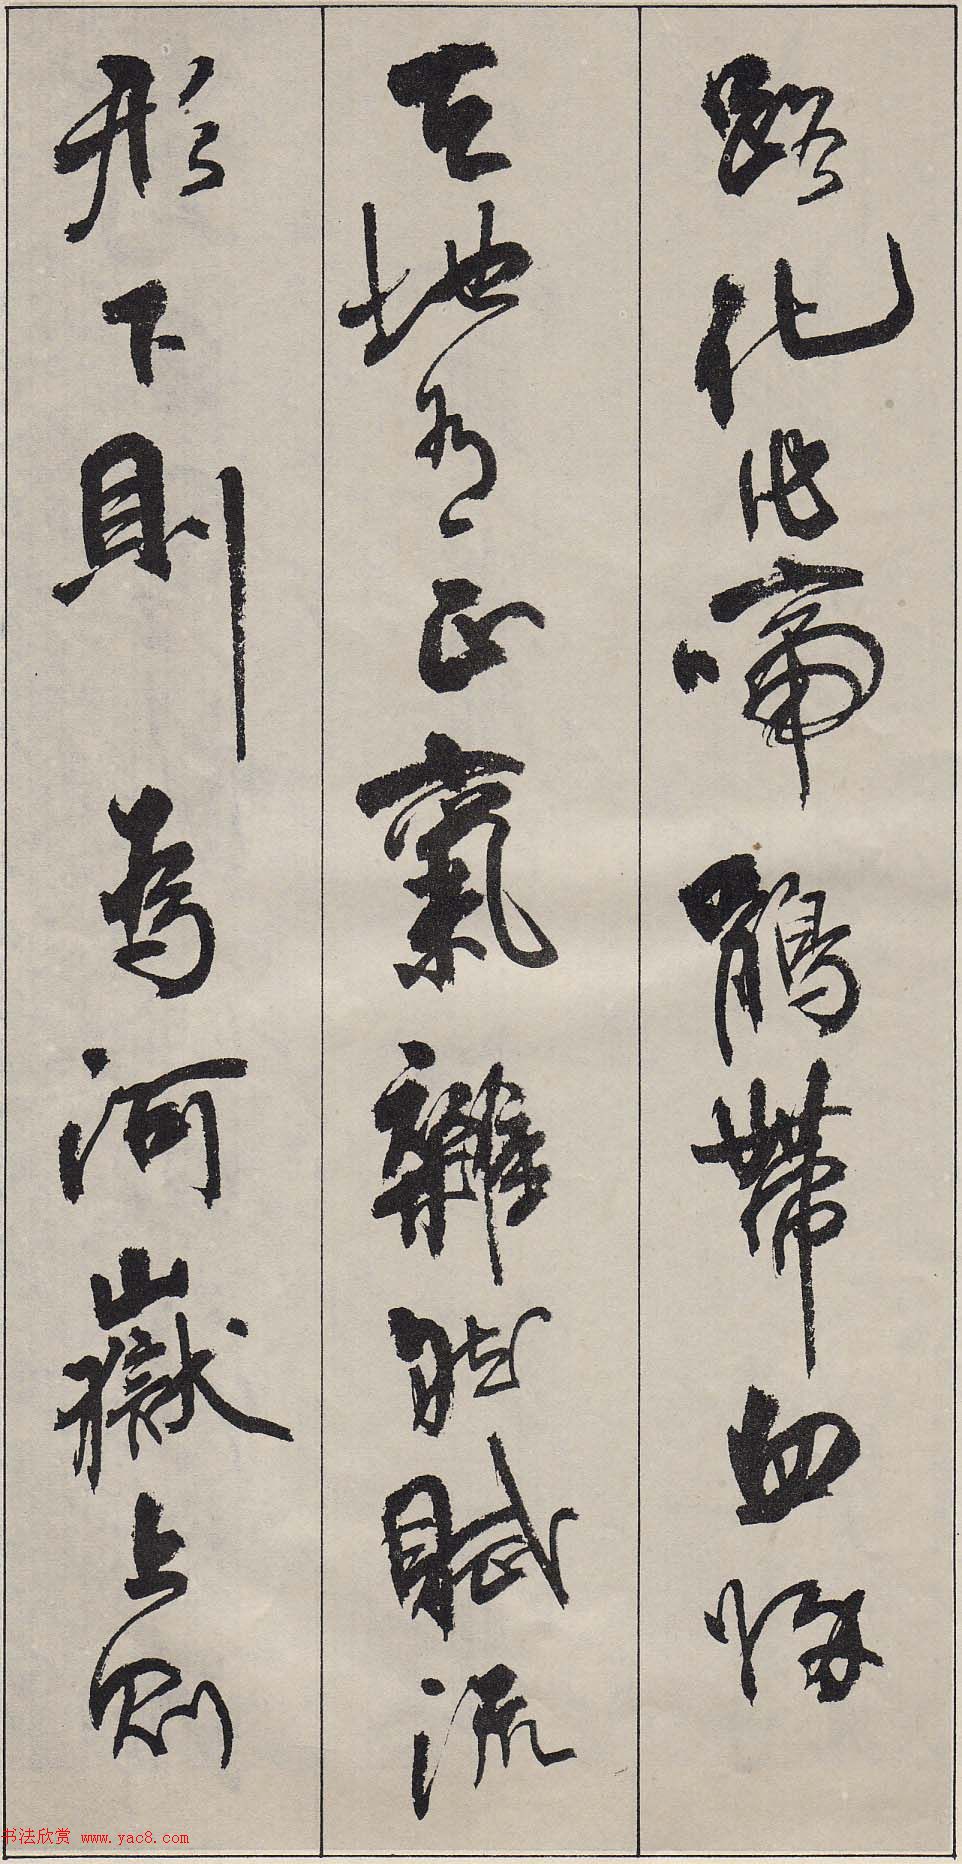 路化作啼鵑帶血歸
天地有正氣雜然賦流
形下則為河嶽上則
书法欣赏 www.yac8.com